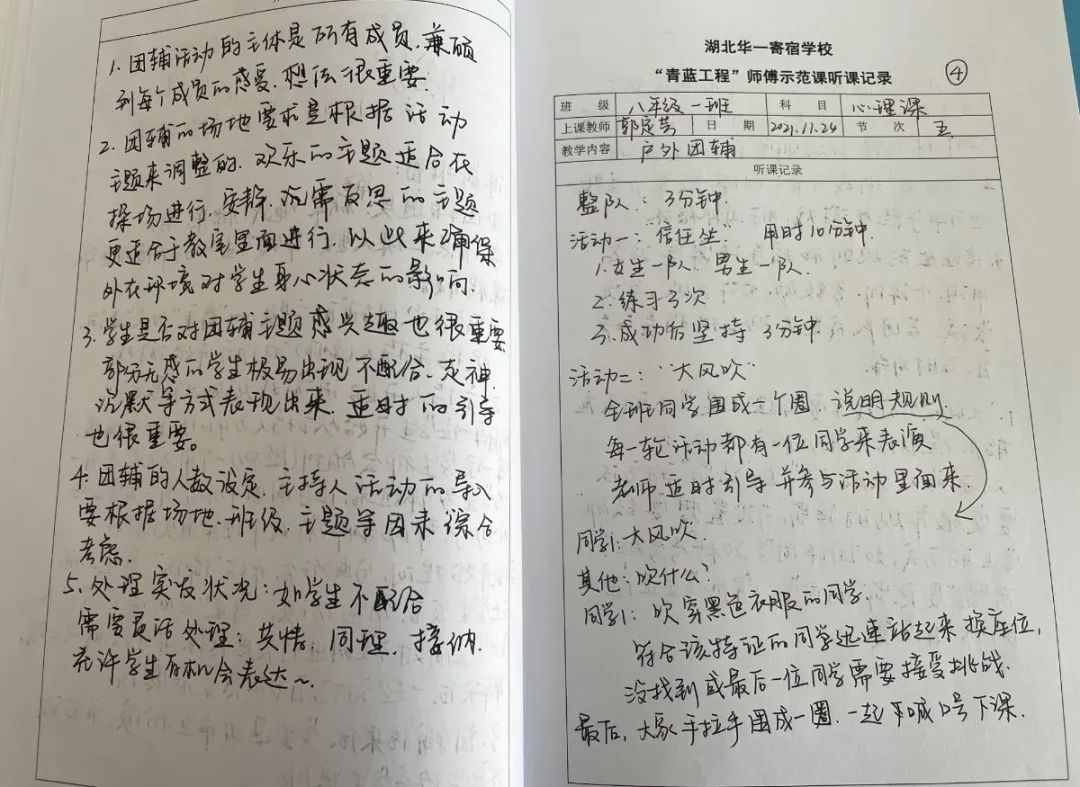 1. 团辅活动的主体是所有成员，兼顾
到每个成员的感受、想法很重要.
2. 团辅的场地要求是根据活动
主题来调整的. 欢乐的主题适合在
操场进行，安静、沉需反思的主题
更适合于教室里面进行，以此来确保
外在环境对学生身心状态的影响.
3. 学生是否对团辅主题感兴趣也很重要
部分无感的学生极易出现不配合、走神、
沉默等方式表现出来，适时的引导
也很重要。
4. 团辅的人数设定、主持人活动的导入
要根据场地、班级、主题等因素综合
考虑.
5. 处理突发状况：如学生不配合
需要灵活处理：共情，同理，接纳.
允许学生有机会表达~
湖北华一寄宿学校
“青蓝工程”师傅示范课听课记录 ④
班 级 八年级一班 科 目 心理课
上课教师 郭定芸 日 期 2021.11.24 节 次 五
教学内容 户外团辅
听课记录
整队：3分钟.
活动一：“信任坐” 用时10分钟.
1. 女生一队，男生一队.
2. 练习3次
3. 成功后坚持3分钟.
活动二：“大风吹”
全班同学围成一个圈，说明规则
每一轮活动都有一位同学来表演
老师适时引导并参与活动里面来.
同学1：大风吹.
其他：吹什么？
同学1：吹穿黑色衣服的同学.
符合该特证的同学迅速站起来换座位，
没找到或最后一位同学需要接受挑战.
最后，大家手拉手围成一圈，一起喊口号下课.